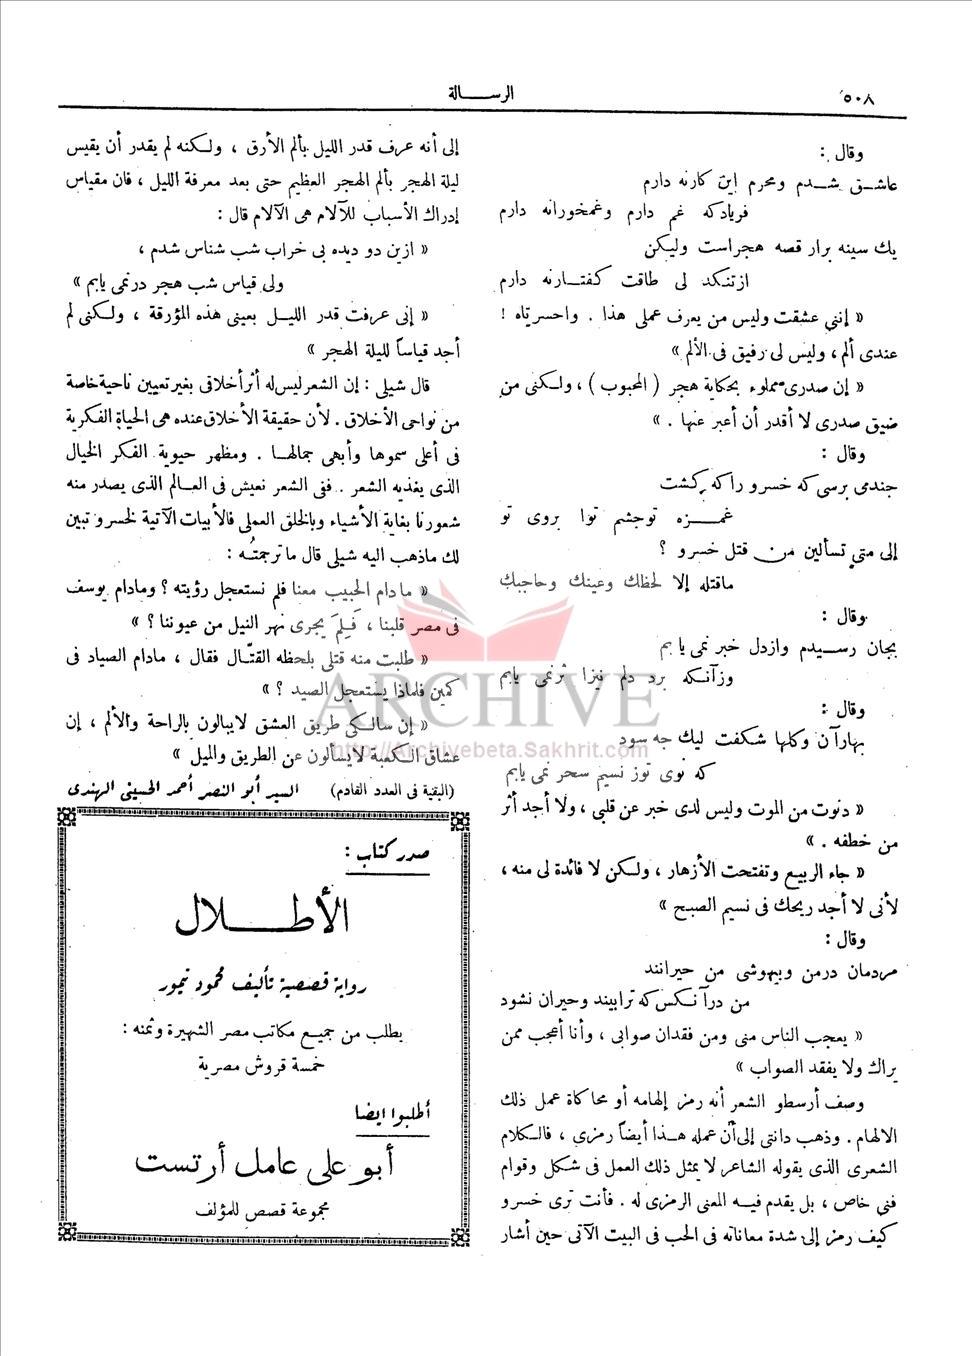 ٥٠٨
الرســـالة
وقال :
عاشـق شـدم ومحرم اين كارنه دارم
فريادكه غم دارم وغمخورانه دارم
يك سينه برار قصه هجراست وليكن
ازتنكد لى طاقت كفتـارنه دارم
« إننى عشقت وليس من يعرف عملى هذا . واحسرتاه !
عندى ألم ، وليس لى رفيق فى الألم »
« إن صدرى مملوء بحكاية هجر ( المحبوب ) ، ولكنى من
ضيق صدرى لا أقدر أن أعبر عنها . »
وقال :
جندمى برسى كه خسرو راكه بكشت
غمـــزه توجشم توا بروى تو
إلى متى تسألين من قتل خسرو ؟
ماقتله إلا لحظك وعينك وحاجبك
وقال :
بجان رسـيدم وازدل خبر نمى يا بم
وزآنـكه برد دلم نيزا ثرنمى يابم
وقال :
بهارآن وكلها شكفت ليك جه سود
كه نوى توز نسيم سحر نمى يابم
« دنوت من الموت وليس لدى خبر عن قلبى ، ولا أجد أثر
من خطفه . »
« جاء الربيع وتفتحت الأزهار ، ولكن لا فائدة لى منه ،
لأنى لا أجد ريحك فى نسيم الصبح »
وقال :
مردمان درمن وبيهوشى من حيرانند
من درآ نكس كه ترابيند وحيران نشود
« يعجب الناس منى ومن فقدان صوابى ، وأنا أعجب ممن
يراك ولا يفقد الصواب »
وصف أرسطو الشعر أنه رمز إلهامه أو محاكاة عمل ذلك
الالهام . وذهب دانتى إلى أن عمله هـذا أيضاً رمزى ، فالـكلام
الشعرى الذى يقوله الشاعر لا يمثل ذلك العمل فى شكل وقوام
فنى خاص ، بل يقدم فيـه المعنى الرمزى له . فأنت ترى خسرو
كيف رمز إلى شدة معاناته فى الحب فى البيت الآتى حين أشار
إلى أنه عرف قدر الليل بألم الأرق ، ولـكنه لم يقدر أن يقيس
ليلة الهجر بألم الهجر العظيم حتى بعد معرفة الليل ، فان مقياس
إدراك الأسباب للآلام هى الآلام قال :
« ازين دو ديده بى خراب شب شناس شدم ،
ولى قياس شب هجر درنمى يابم »
« إنى عرفت قدر الليـل بعينى هذه المؤرقة ، ولـكنى لم
أجد قياساً لليلة الهجر »
قال شيلى : إن الشعر ليس له أثر أخلاقى بغير تعيين ناحية خاصة
من نواحى الأخلاق . لأن حقيقة الأخلاق عنده هى الحياة الفكرية
فى أعلى سموها وأبهى جمالهـا . ومظهر حيوية الفكر الخيال
الذى يغذيه الشعر . ففى الشعر نعيش فى العـالم الذى يصدر منه
شعورنا بغاية الأشياء وبالخلق العملى فالأبيات الآتية لخسرو تبين
لك ماذهب اليه شيلى قال ما ترجمتُـه :
« مادام الحبيب معنا فلم نستعجل رؤيته ؟ ومادام يوسف
فى مصر قلبنا ، فَـلِمَ يجرى نهر النيل من عيوننا ؟ »
« طلبت منه قتلى بلحظه القتّـال فقال ، مادام الصياد فى
كمين فلماذا يستعجل الصيد ؟ »
« إن سالـكى طريق العشق لايبالون بالراحة والألم ، إن
عشاق الـكعبة لايسألون عن الطريق والميل »
(البقية فى العدد القادم) السيد أبو النصر أحمد الحسينى الهندى
صدر كتاب :
الأطـــلال
رواية قصصية تأليف محمود تيمور
يطلب من جميـع مكاتب مصر الشهيرة وثمنه :
خمسة قروش مصرية
أطلبوا ايضا
أبو على عامل أرتست
مجموعة قصص للمؤلف
ARCHIVE
http://Archivebeta.Sakhrit.com